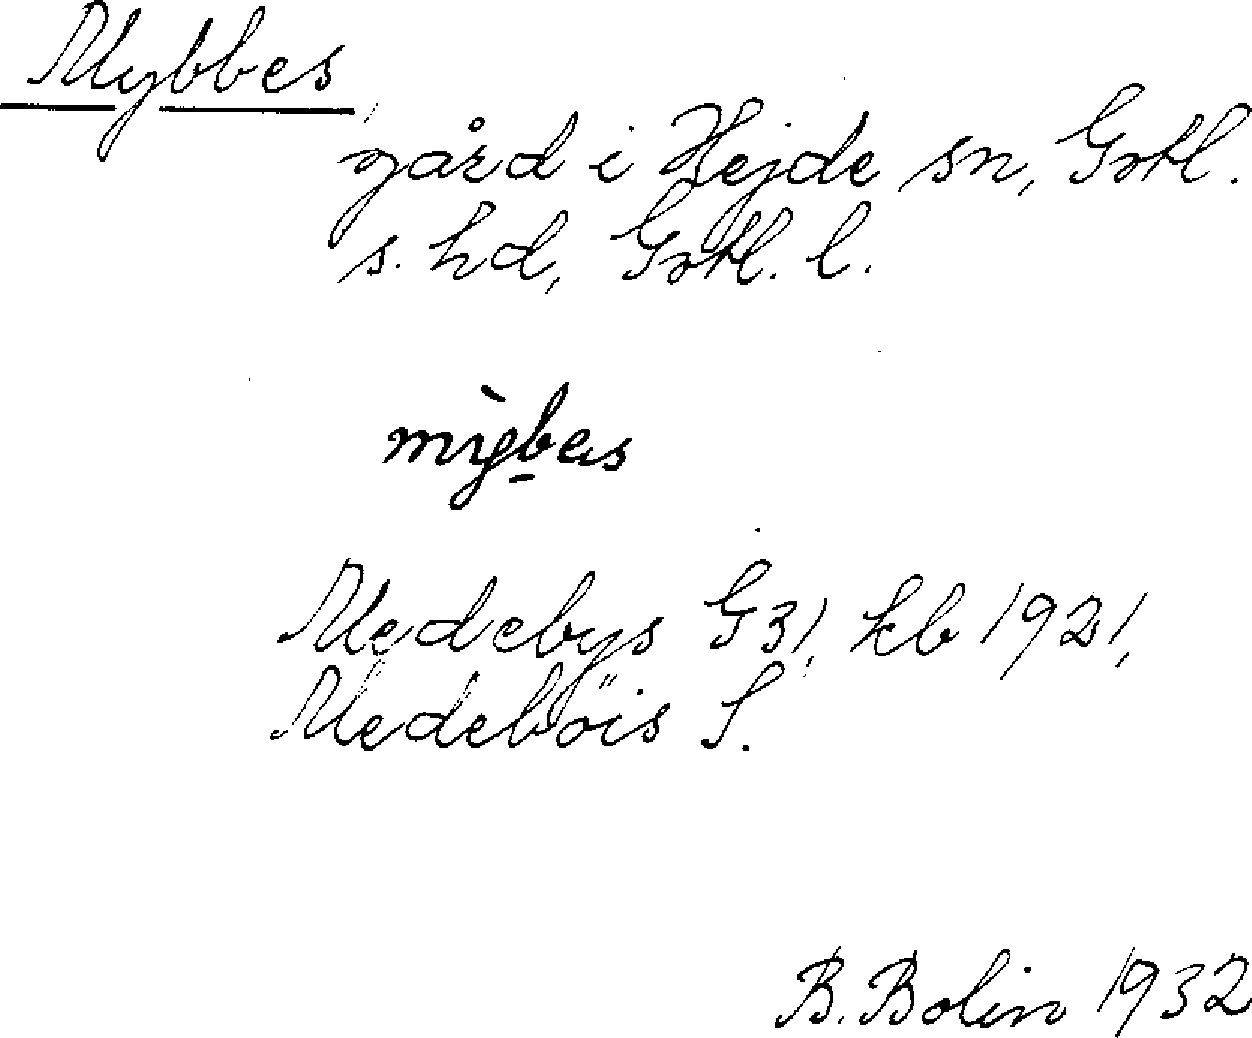 Mybbes
gård i Hejde sn, Gotl.
s. hd, Gotl. l.
mỳbes
Medebys G31, kb 1921,
Medeböis S.
B. Bolin 1932